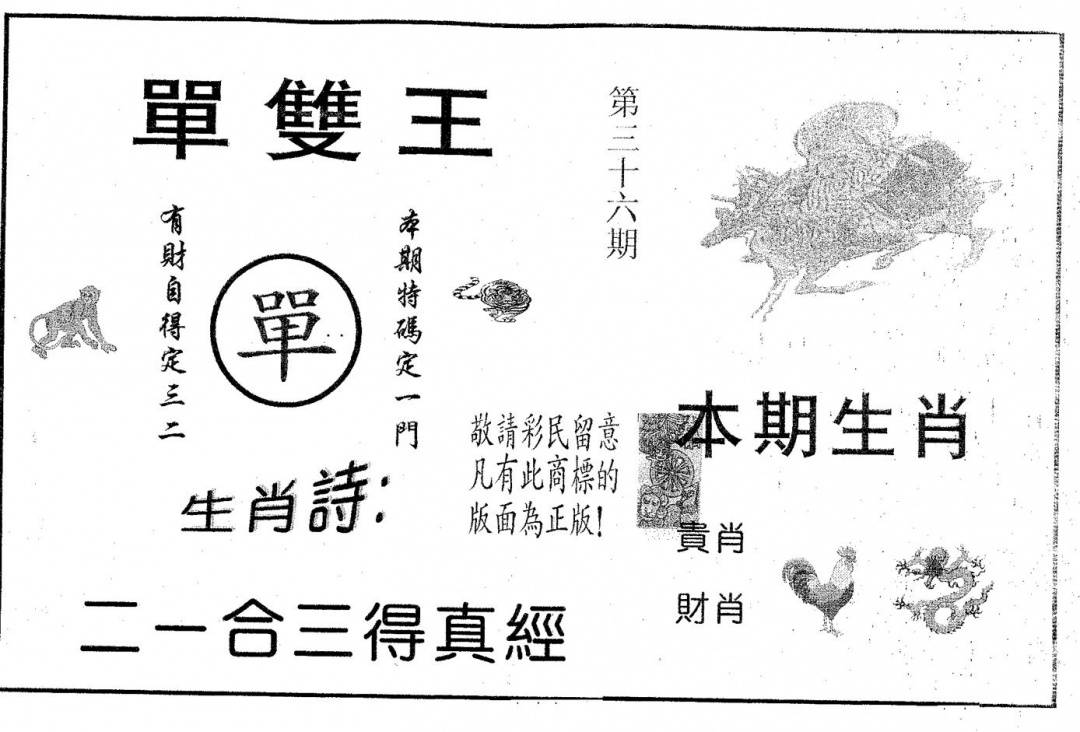 單雙王
第三十六期
本期特碼定一門
單
有財自得定三二
敬請彩民留意
凡有此商標的
版面為正版!
生肖詩:
二一合三得真經
本期生肖
貴肖
財肖